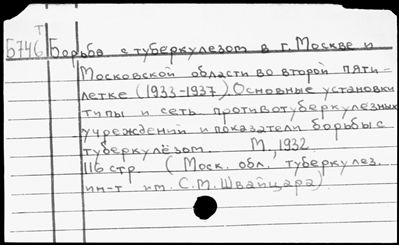 Т
Б746 Борьба с туберкулезом в г. Москве и
Московской области во второй пяти-
летке (1933-1937). Основные установки
типы и сеть противотуберкулезных
учреждений и показатели борьбы с
туберкулёзом. М., 1932.
116 стр. (Моск. обл. туберкулез.
ин-т им. С.М. Швайцара)